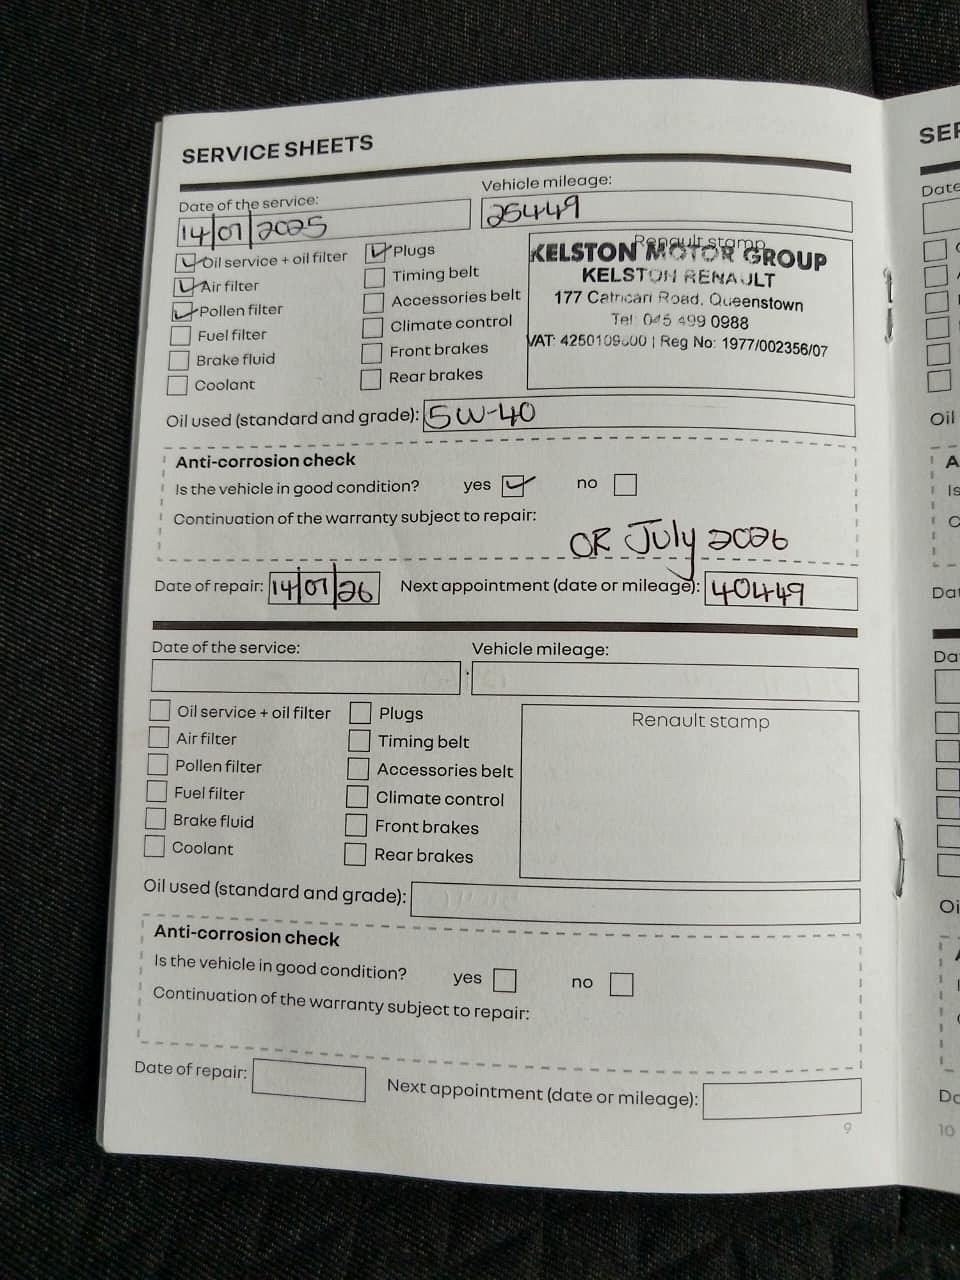 SERVICE SHEETS
Date of the service:
Vehicle mileage:
14/07/2025
25449
Oil service + oil filter
Air filter
Pollen filter
Fuel filter
Brake fluid
Coolant
Plugs
Timing belt
Accessories belt
Climate control
Front brakes
Rear brakes
Renault stamp
KELSTON MOTOR GROUP
KELSTON RENAULT
177 Cathcart Road, Queenstown
Tel: 045 499 0988
VAT: | Reg No: 1977/002356/07
Oil used (standard and grade): 5W-40
Anti-corrosion check
Is the vehicle in good condition? yes no
Continuation of the warranty subject to repair:
OR July 2026
Date of repair: 14/07/26 Next appointment (date or mileage): 40449
Date of the service:
Vehicle mileage:
Oil service + oil filter
Air filter
Pollen filter
Fuel filter
Brake fluid
Coolant
Plugs
Timing belt
Accessories belt
Climate control
Front brakes
Rear brakes
Renault stamp
Oil used (standard and grade):
Anti-corrosion check
Is the vehicle in good condition? yes no
Continuation of the warranty subject to repair:
Date of repair: Next appointment (date or mileage):
9
10